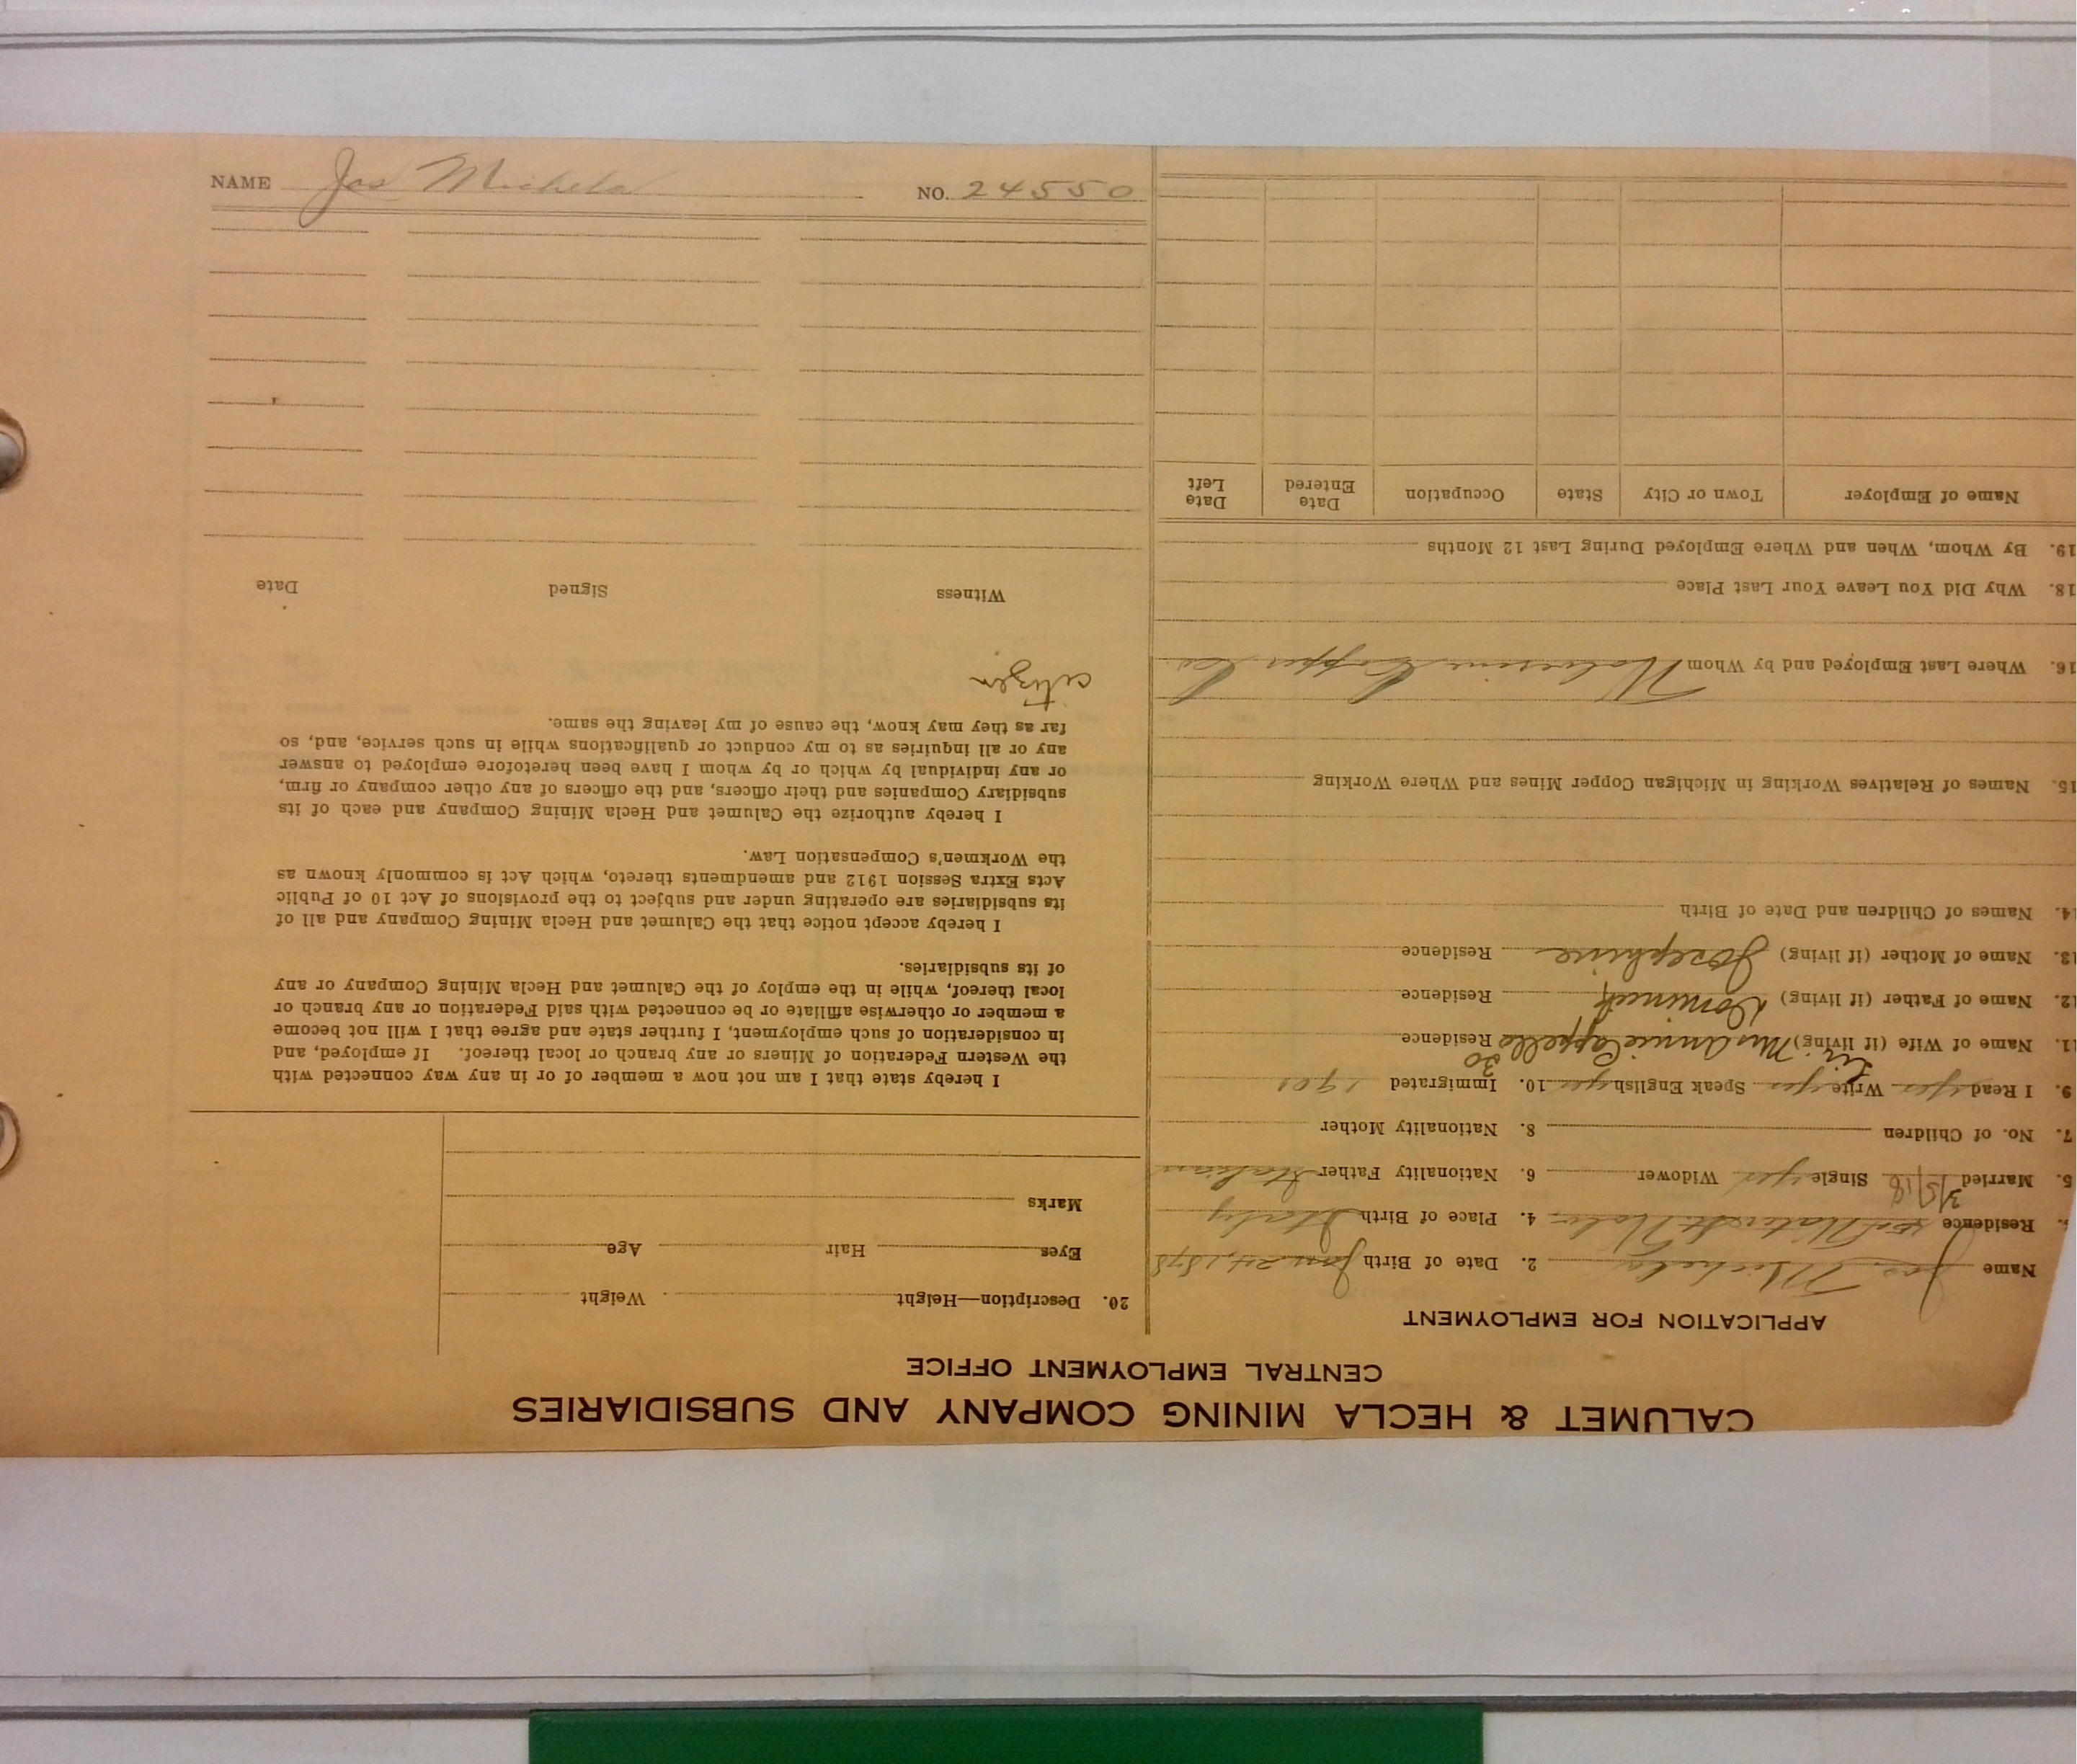 CALUMET & HECLA MINING COMPANY AND SUBSIDIARIES
CENTRAL EMPLOYMENT OFFICE
APPLICATION FOR EMPLOYMENT
Name Jos. Michela 2. Date of Birth Jan 24, 1878
Residence Water St. 4. Place of Birth Italy
3/5/18
5. Married Single yes Widower 6. Nationality Father Italian
7. No. of Children 8. Nationality Mother
9. I Read yes Write yes Speak English yes 10. Immigrated 1901
30
11. Name of Wife (if living) Mrs Annie Cappello Residence
12. Name of Father (if living) Dominick Residence
13. Name of Mother (if living) Josephine Residence
14. Names of Children and Date of Birth
15. Names of Relatives Working in Michigan Copper Mines and Where Working
16. Where Last Employed and by Whom Wolverine Copper Co
18. Why Did You Leave Your Last Place
19. By Whom, When and Where Employed During Last 12 Months
Name of Employer Town or City State Occupation Date Entered Date Left
20. Description—Height Weight
Eyes Hair Age
Marks
I hereby state that I am not now a member of or in any way connected with
the Western Federation of Miners or any branch or local thereof. If employed, and
in consideration of such employment, I further state and agree that I will not become
a member or otherwise affiliate or be connected with said Federation or any branch or
local thereof, while in the employ of the Calumet and Hecla Mining Company or any
of its subsidiaries.
I hereby accept notice that the Calumet and Hecla Mining Company and all of
its subsidiaries are operating under and subject to the provisions of Act 10 of Public
Acts Extra Session 1912 and amendments thereto, which Act is commonly known as
the Workmen's Compensation Law.
I hereby authorize the Calumet and Hecla Mining Company and each of its
subsidiary Companies and their officers, and the officers of any other company or firm,
or any individual by which or by whom I have been heretofore employed to answer
any or all inquiries as to my conduct or qualifications while in such service, and, so
far as they may know, the cause of my leaving the same.
citizen
Witness Signed Date
NAME Jos Michela NO. 24550